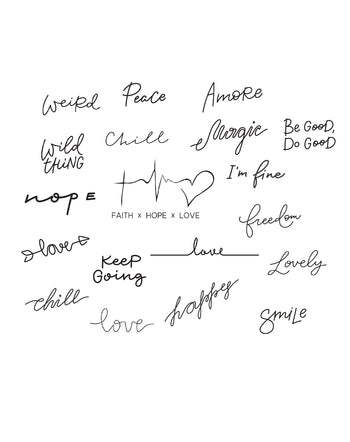 Weird
Peace
Amore
Wild
thing
Chill
Magic
Be Good,
Do Good
nope
I'm fine
FAITH x HOPE x LOVE
freedom
love
Keep
Going
love
Lovely
chill
love
happy
Smile